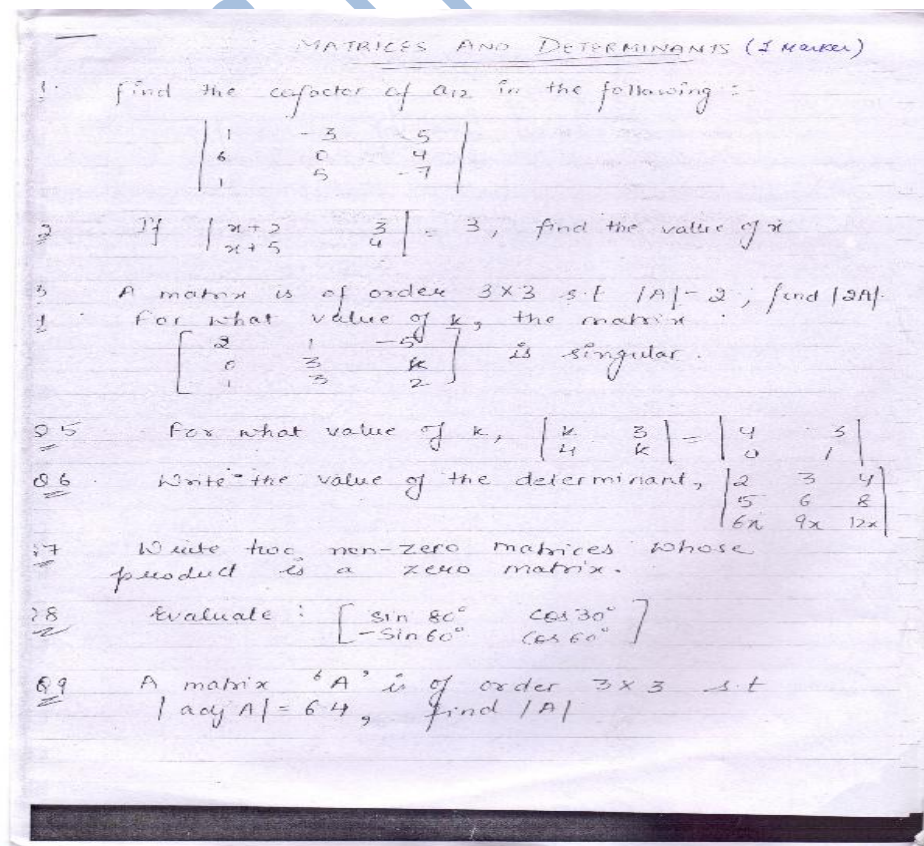 MATRICES AND DETERMINANTS (1 Marker)
1. find the cofactor of a12 in the following :-
| 1 -3 5 |
| 6 0 4 |
| 1 5 -7 |
2 If | x+2 3 | = 3, find the value of x
| x+5 4 |
3 A matrix is of order 3X3 s.t |A|-2, find |2A|.
4 For what value of k, the matrix
[ 2 1 -5 ]
[ 0 3 k ] is singular.
[ 1 3 2 ]
Q5 For what value of k, | k 3 | = | 4 5 |
| 4 k | | 0 1 |
Q6 Write the value of the determinant, | 2 3 4 |
| 5 6 8 |
| 6x 9x 12x |
Q7 Write two non-zero matrices whose
product is a zero matrix.
Q8 Evaluate : [ sin 80° cos 30° ]
[ -Sin 60° Cos 60° ]
Q9 A matrix 'A' is of order 3x3 s.t
|adj A| = 64, find |A|